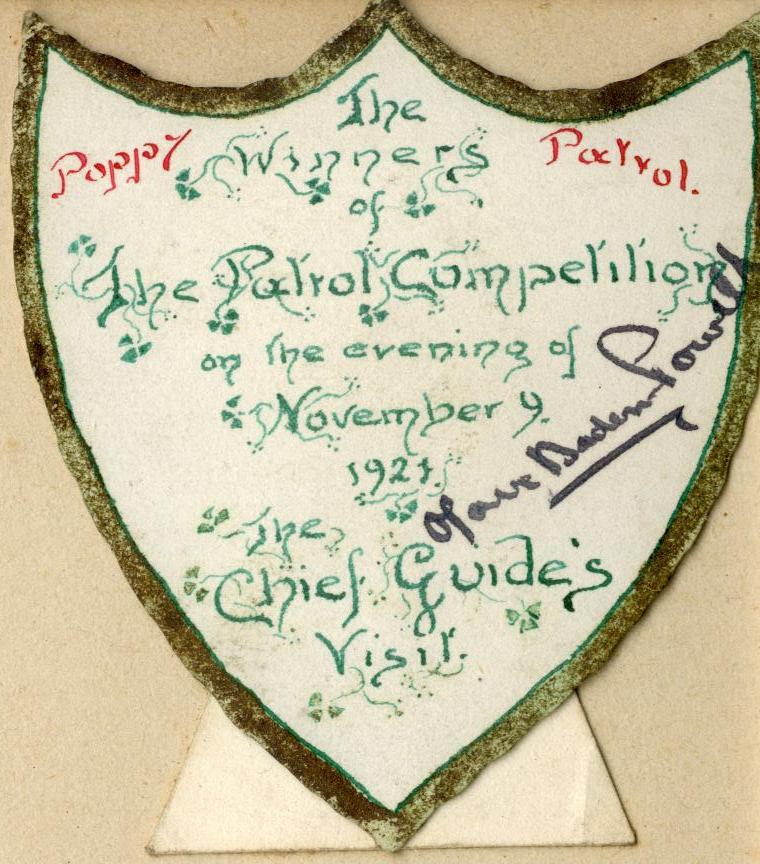 The
Poppy Winners Patrol.
of
The Patrol Competition
on the evening of
November 9.
1921.
The
Chief Guide's
Visit.
Olave Baden-Powell